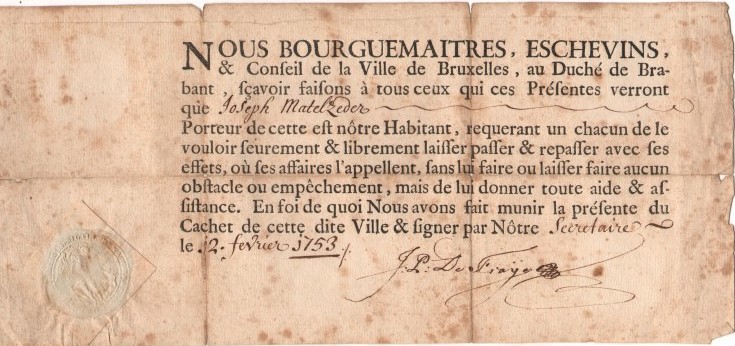 NOUS BOURGUEMAITRES, ESCHEVINS,
& Conſeil de la Ville de Bruxelles, au Duché de Bra-
bant, ſçavoir faiſons à tous ceux qui ces Préſentes verront
que Joſeph Matelzeder
Porteur de cette eſt nôtre Habitant, requerant un chacun de le
vouloir ſeurement & librement laiſſer paſſer & repaſſer avec ſes
effets, où ſes affaires l'appellent, ſans lui faire ou laiſſer faire aucun
obſtacle ou empêchement, mais de lui donner toute aide & aſ-
ſiſtance. En foi de quoi Nous avons fait munir la préſente du
Cachet de cette dite Ville & ſigner par Nôtre Secretaire
le 12. fevrier 1753
J. P. De Fraÿe